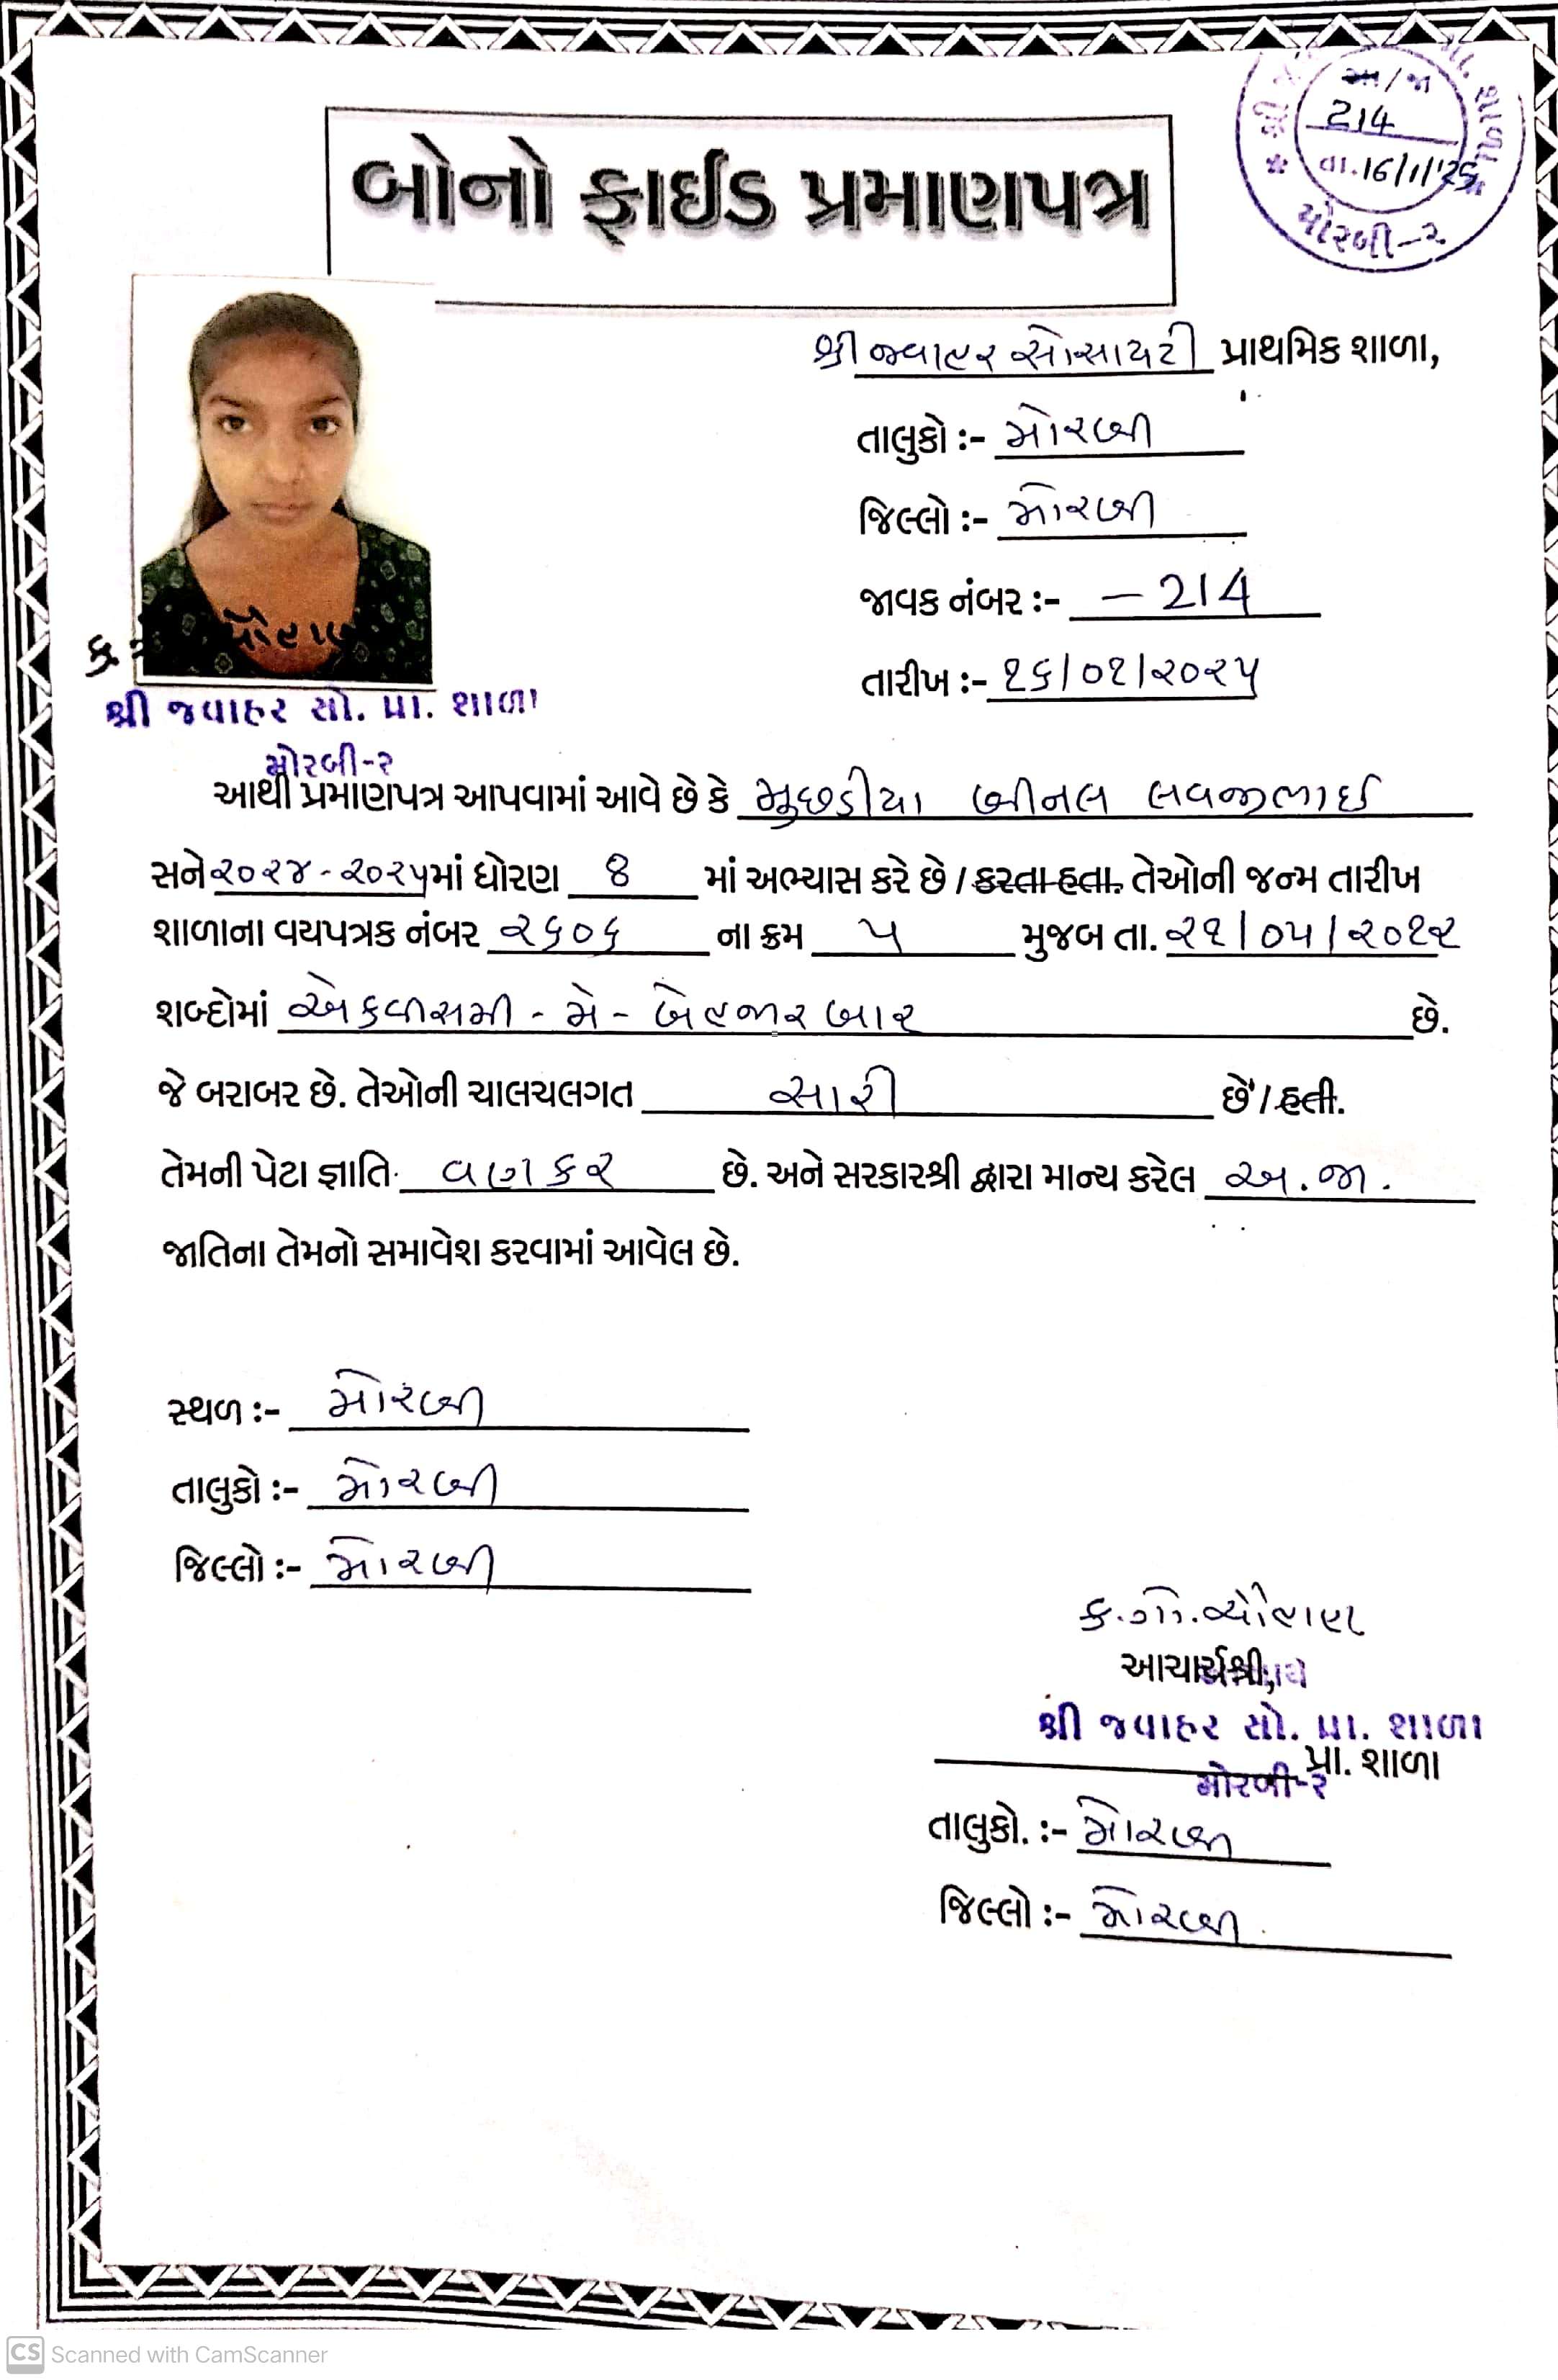 આ/જા
214
તા.16/1/'25
મોરબી-૨
બોનો ફાઈડ પ્રમાણપત્ર
શ્રી જવાહર સોસાયટી પ્રાથમિક શાળા,
તાલુકો :- મોરબી
જિલ્લો :- મોરબી
જાવક નંબર :- - 214
તારીખ :- ૧૬/૦૧/૨૦૨૫
શ્રી જવાહર સો. પ્રા. શાળા
મોરબી-૨
આથી પ્રમાણપત્ર આપવામાં આવે છે કે મુછડીયા બીનલ લવજીભાઈ
સને ૨૦૨૪-૨૦૨૫માં ધોરણ 8 માં અભ્યાસ કરે છે / કરતા હતા. તેઓની જન્મ તારીખ
શાળાના વયપત્રક નંબર ૨૬૦૬ ના ક્રમ ૫ મુજબ તા. ૨૧/૦૫/૨૦૧૨
શબ્દોમાં એકવીસમી - મે - બેહજાર બાર છે.
જે બરાબર છે. તેઓની ચાલચલગત સારી છે / હતી.
તેમની પેટા જ્ઞાતિ વણકર છે. અને સરકારશ્રી દ્વારા માન્ય કરેલ અ.જા.
જાતિના તેમનો સમાવેશ કરવામાં આવેલ છે.
સ્થળ :- મોરબી
તાલુકો :- મોરબી
જિલ્લો :- મોરબી
ક.ગો.ચૌહાણ
આચાર્યશ્રી,
શ્રી જવાહર સો. પ્રા. શાળા
પ્રા. શાળા
મોરબી-૨
તાલુકો. :- મોરબી
જિલ્લો :- મોરબી
CS Scanned with CamScanner